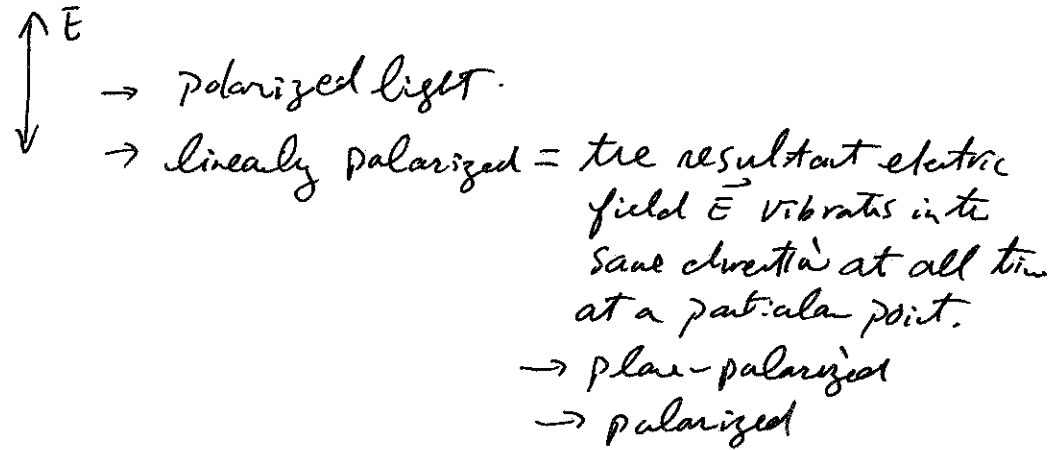 E
→ polarized light.
→ linearly polarized = the resultant electric
field E⃗ vibrates in the
same direction at all time
at a particular point.
→ plane-polarized
→ polarized